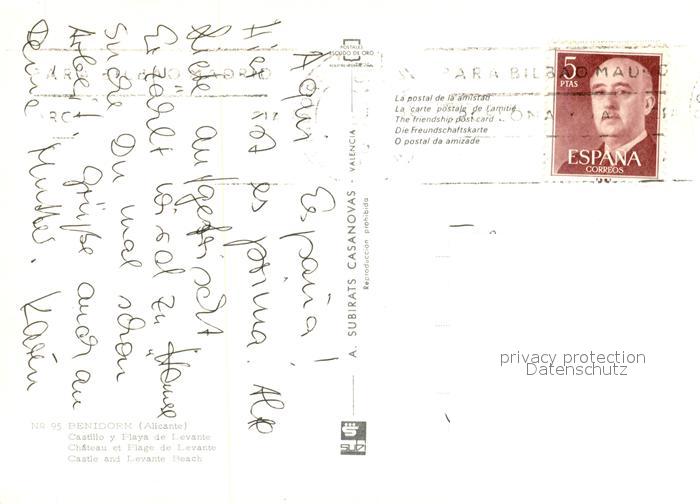 Aqui España!
Hier ist es prima. Alle
sind
Erzähl
Suche Du mal schon
Arbeit! Grüße auch an
Deine Mutter. Karin
Nº 95 BENIDORM (Alicante)
Castillo y Playa de Levante
Château et Plage de Levante
Castle and Levante Beach
POSTALES
ESCUDO DE ORO
A. SUBIRATS CASANOVAS - VALENCIA
Reproduccion prohibida
SUC
La postal de la amistad
La carte postale de l'amitié
The friendship post card
Die Freundschaftskarte
O postal da amizade
PARA BILBAO MADRID
PARA BILBAO
5
PTAS
ESPAÑA
CORREOS
privacy protection
Datenschutz